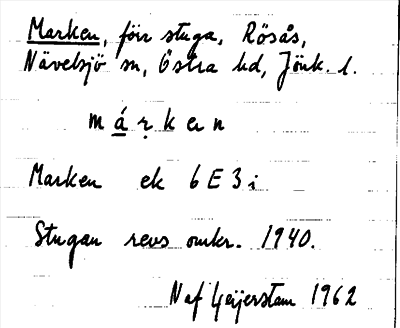 Marken, förr stuga, Rösås,
Nävelsjö sn, Östra hd, Jönk. l.
márkeṇ
Marken ek 6E3i
Stugan revs omkr. 1940.
N af Geijerstam 1962